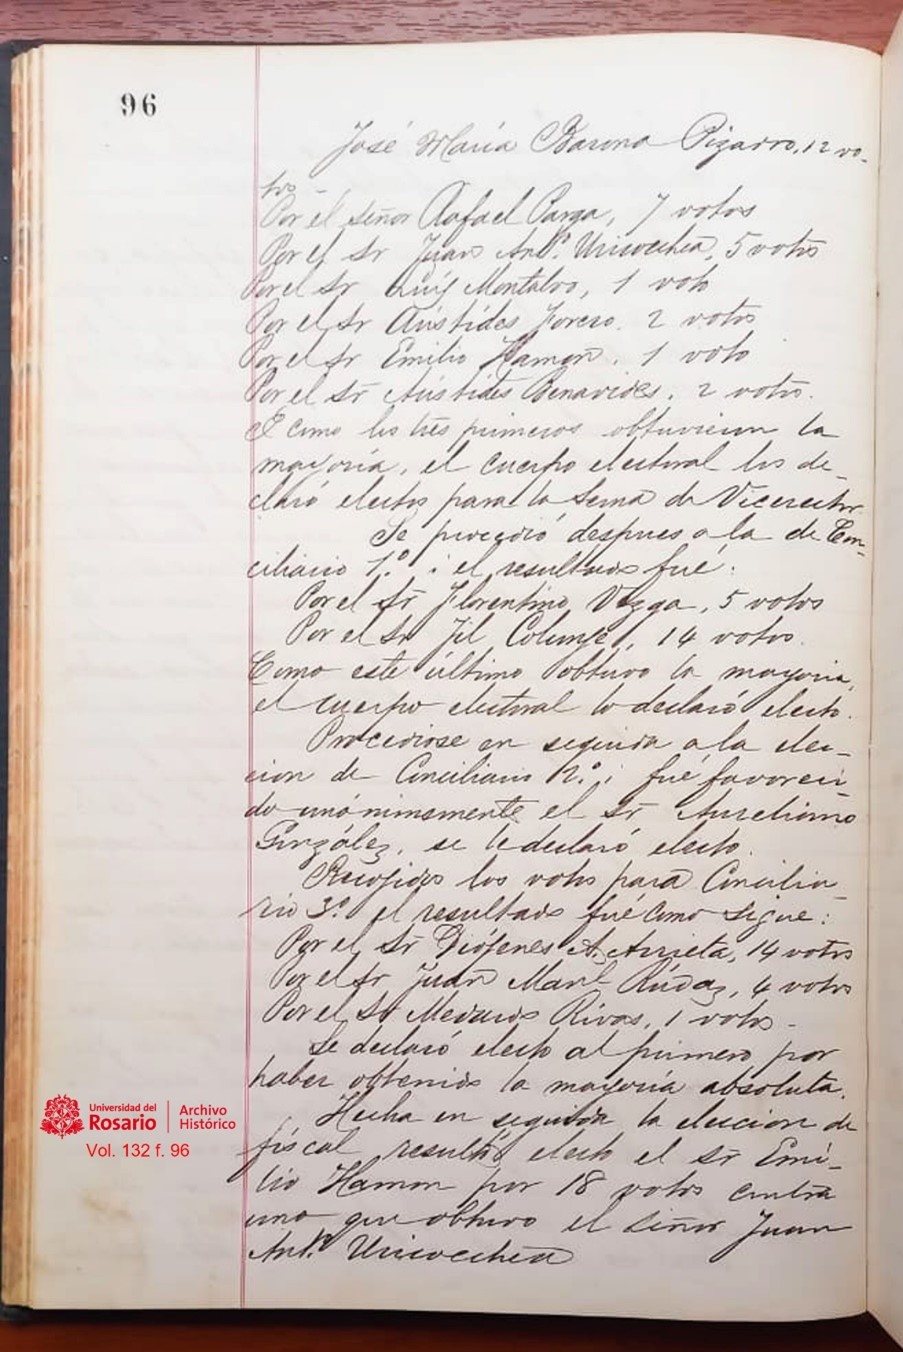 96
José María Barona Pizarro, 12 vo-
tos -
Por el señor Rafael Parga, 7 votos
Por el Sr Juan Antº. Uricoechea, 5 votos
Por el Sr Luís Montalvo, 1 voto
Por el Sr Arístides Forero. 2 votos
Por el Sr Emilio Hamon. 1 voto
Por el Sr Arístides Benavides. 2 votos.
I como los tres primeros obtuvieron la
mayoría, el cuerpo electoral los de-
claró electos para la terna de Vicerector
Se procedió despues a la de Con-
ciliario 1.º i el resultado fué:
Por el Sr Florentino Vezga, 5 votos
Por el Sr Jil Colunje, 14 votos.
Como este último obtuvo la mayoria,
el cuerpo electoral lo declaró electo.
Procediose en seguida a la elec-
cion de Conciliario 2.º i fué favoreci-
do unánimemente el Sr Aureliano
González, se le declaró electo.
Recojidos los votos para Concilia-
rio 3.º el resultado fué como sigue:
Por el Sr Diójenes A. Arrieta, 14 votos
Por el Sr Juan Manl Rúdas, 4 votos
Por el Sr Medardo Rivas, 1 voto -
Se declaró electo al primero por
haber obtenido la mayoría absoluta.
Hecha en seguida la eleccion de
fiscal resultó electo el Sr Emi-
lio Hamon por 18 votos contra
uno que obtuvo el señor Juan
Antº Uricoechea
Universidad del
Rosario
Archivo
Histórico
Vol. 132 f. 96